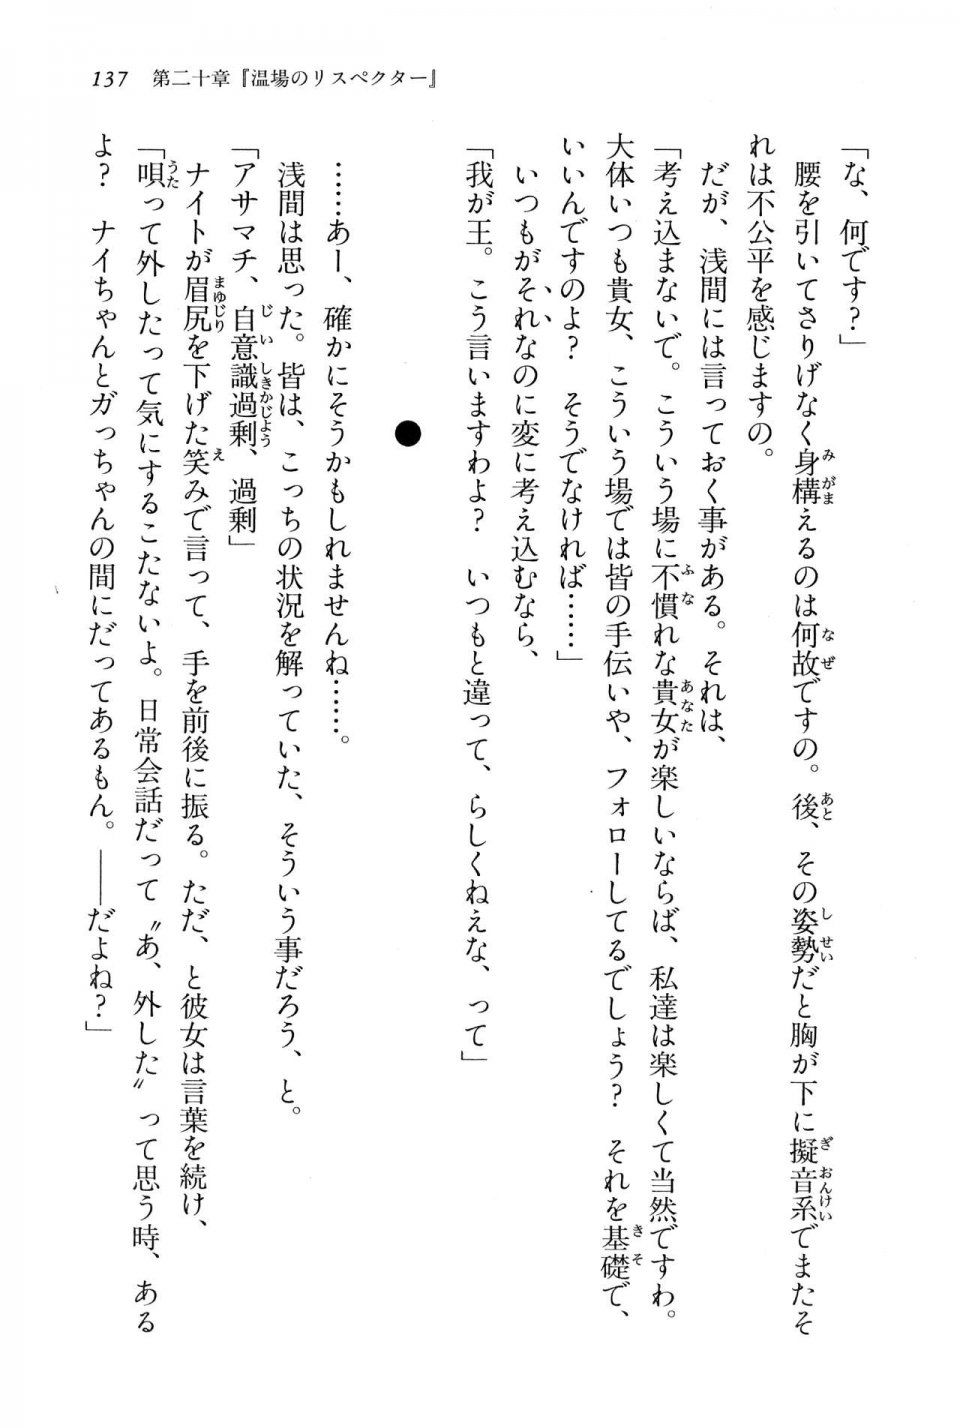 137　第二十章『温場のリスペクター』
「な、何です？」
　腰を引いてさりげなく身構えるのは何故ですの。後、その姿勢だと胸が下に擬音系でまたそ
れは不公平を感じますの。
　だが、浅間には言っておく事がある。それは、
「考え込まないで。こういう場に不慣れな貴女が楽しいならば、私達は楽しくて当然ですわ。
大体いつも貴女、こういう場では皆の手伝いや、フォローしてるでしょう？　それを基礎で、
いいんですのよ？　そうでなければ……」
　いつもがそれなのに変に考え込むなら、
「我が王。こう言いますわよ？　いつもと違って、らしくねえな、って」
●
　……あー、確かにそうかもしれませんね……。
　浅間は思った。皆は、こっちの状況を解っていた、そういう事だろう、と。
「アサマチ、自意識過剰、過剰」
　ナイトが眉尻を下げた笑みで言って、手を前後に振る。ただ、と彼女は言葉を続け、
「唄って外したって気にするこたないよ。日常会話だって〝あ、外した〟って思う時、ある
よ？　ナイちゃんとガっちゃんの間にだってあるもん。――だよね？」